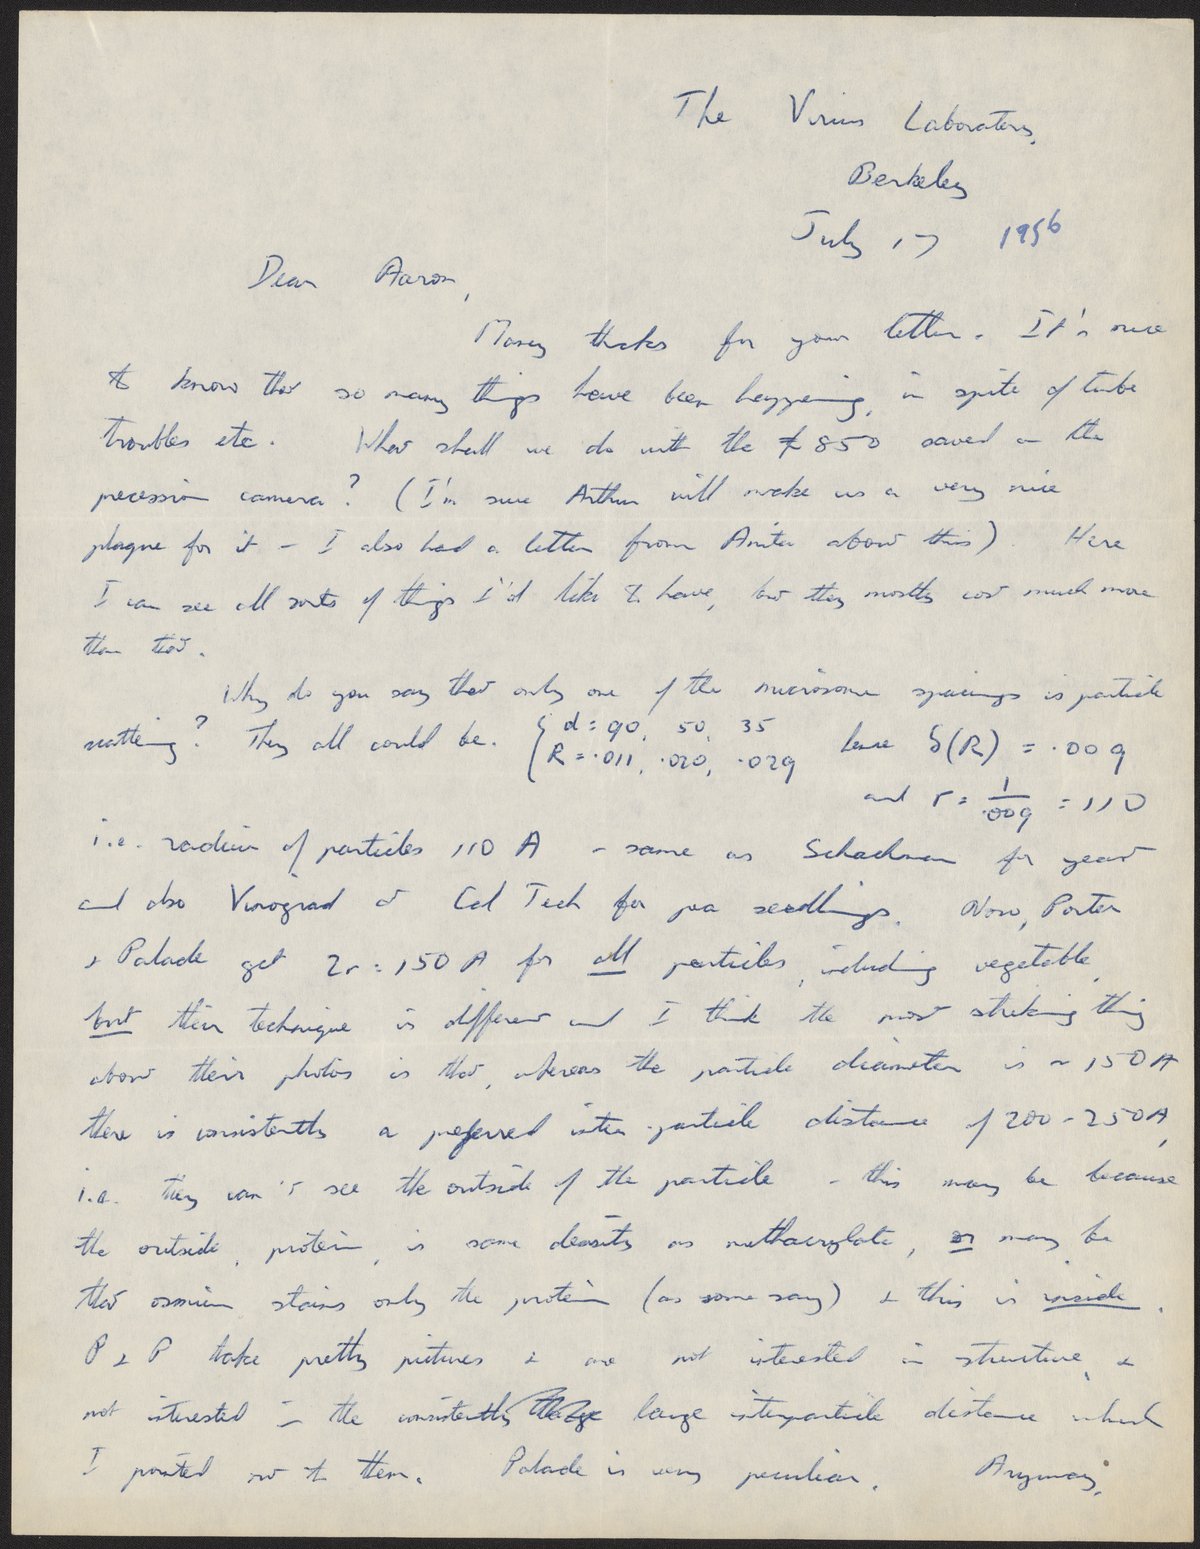 The Virus Laboratory,
Berkeley
July 17 1956
Dear Aaron,
Many thanks for your letter. It's nice
to know that so many things have been happening, in spite of tube
troubles etc. What shall we do with the £850 saved on the
precession camera? (I'm sure Arthur will make us a very nice
plaque for it – I also had a letter from Anita about this). Here
I can see all sorts of things I'd like to have, but they mostly cost much more
than that.
Why do you say that only one of the microsome spacings is particle
scattering? They all could be. { d = 90, 50, 35 hence δ(R) = .009
R = .011, .020, .029
and r = 1/.009 = 110
i.e. radius of particles 110 A – same as Schachman for yeast
and also Vinograd at Cal Tech for pea seedlings. Now, Porter
& Palade get 2r = 150 A for all particles, including vegetable,
but their technique is different and I think the most striking thing
about their photos is that, whereas the particle diameter is ~ 150 A
there is consistently a preferred inter-particle distance of 200-250 A,
i.e. they can't see the outside of the particle – this may be because
the outside, protein, is same density as methacrylate, or may be
that osmium stains only the protein (as some say) & this is inside.
P & P take pretty pictures & are not interested in structure, &
not interested in the consistently large interparticle distance which
I pointed out to them. Palade is very peculiar. Anyway,